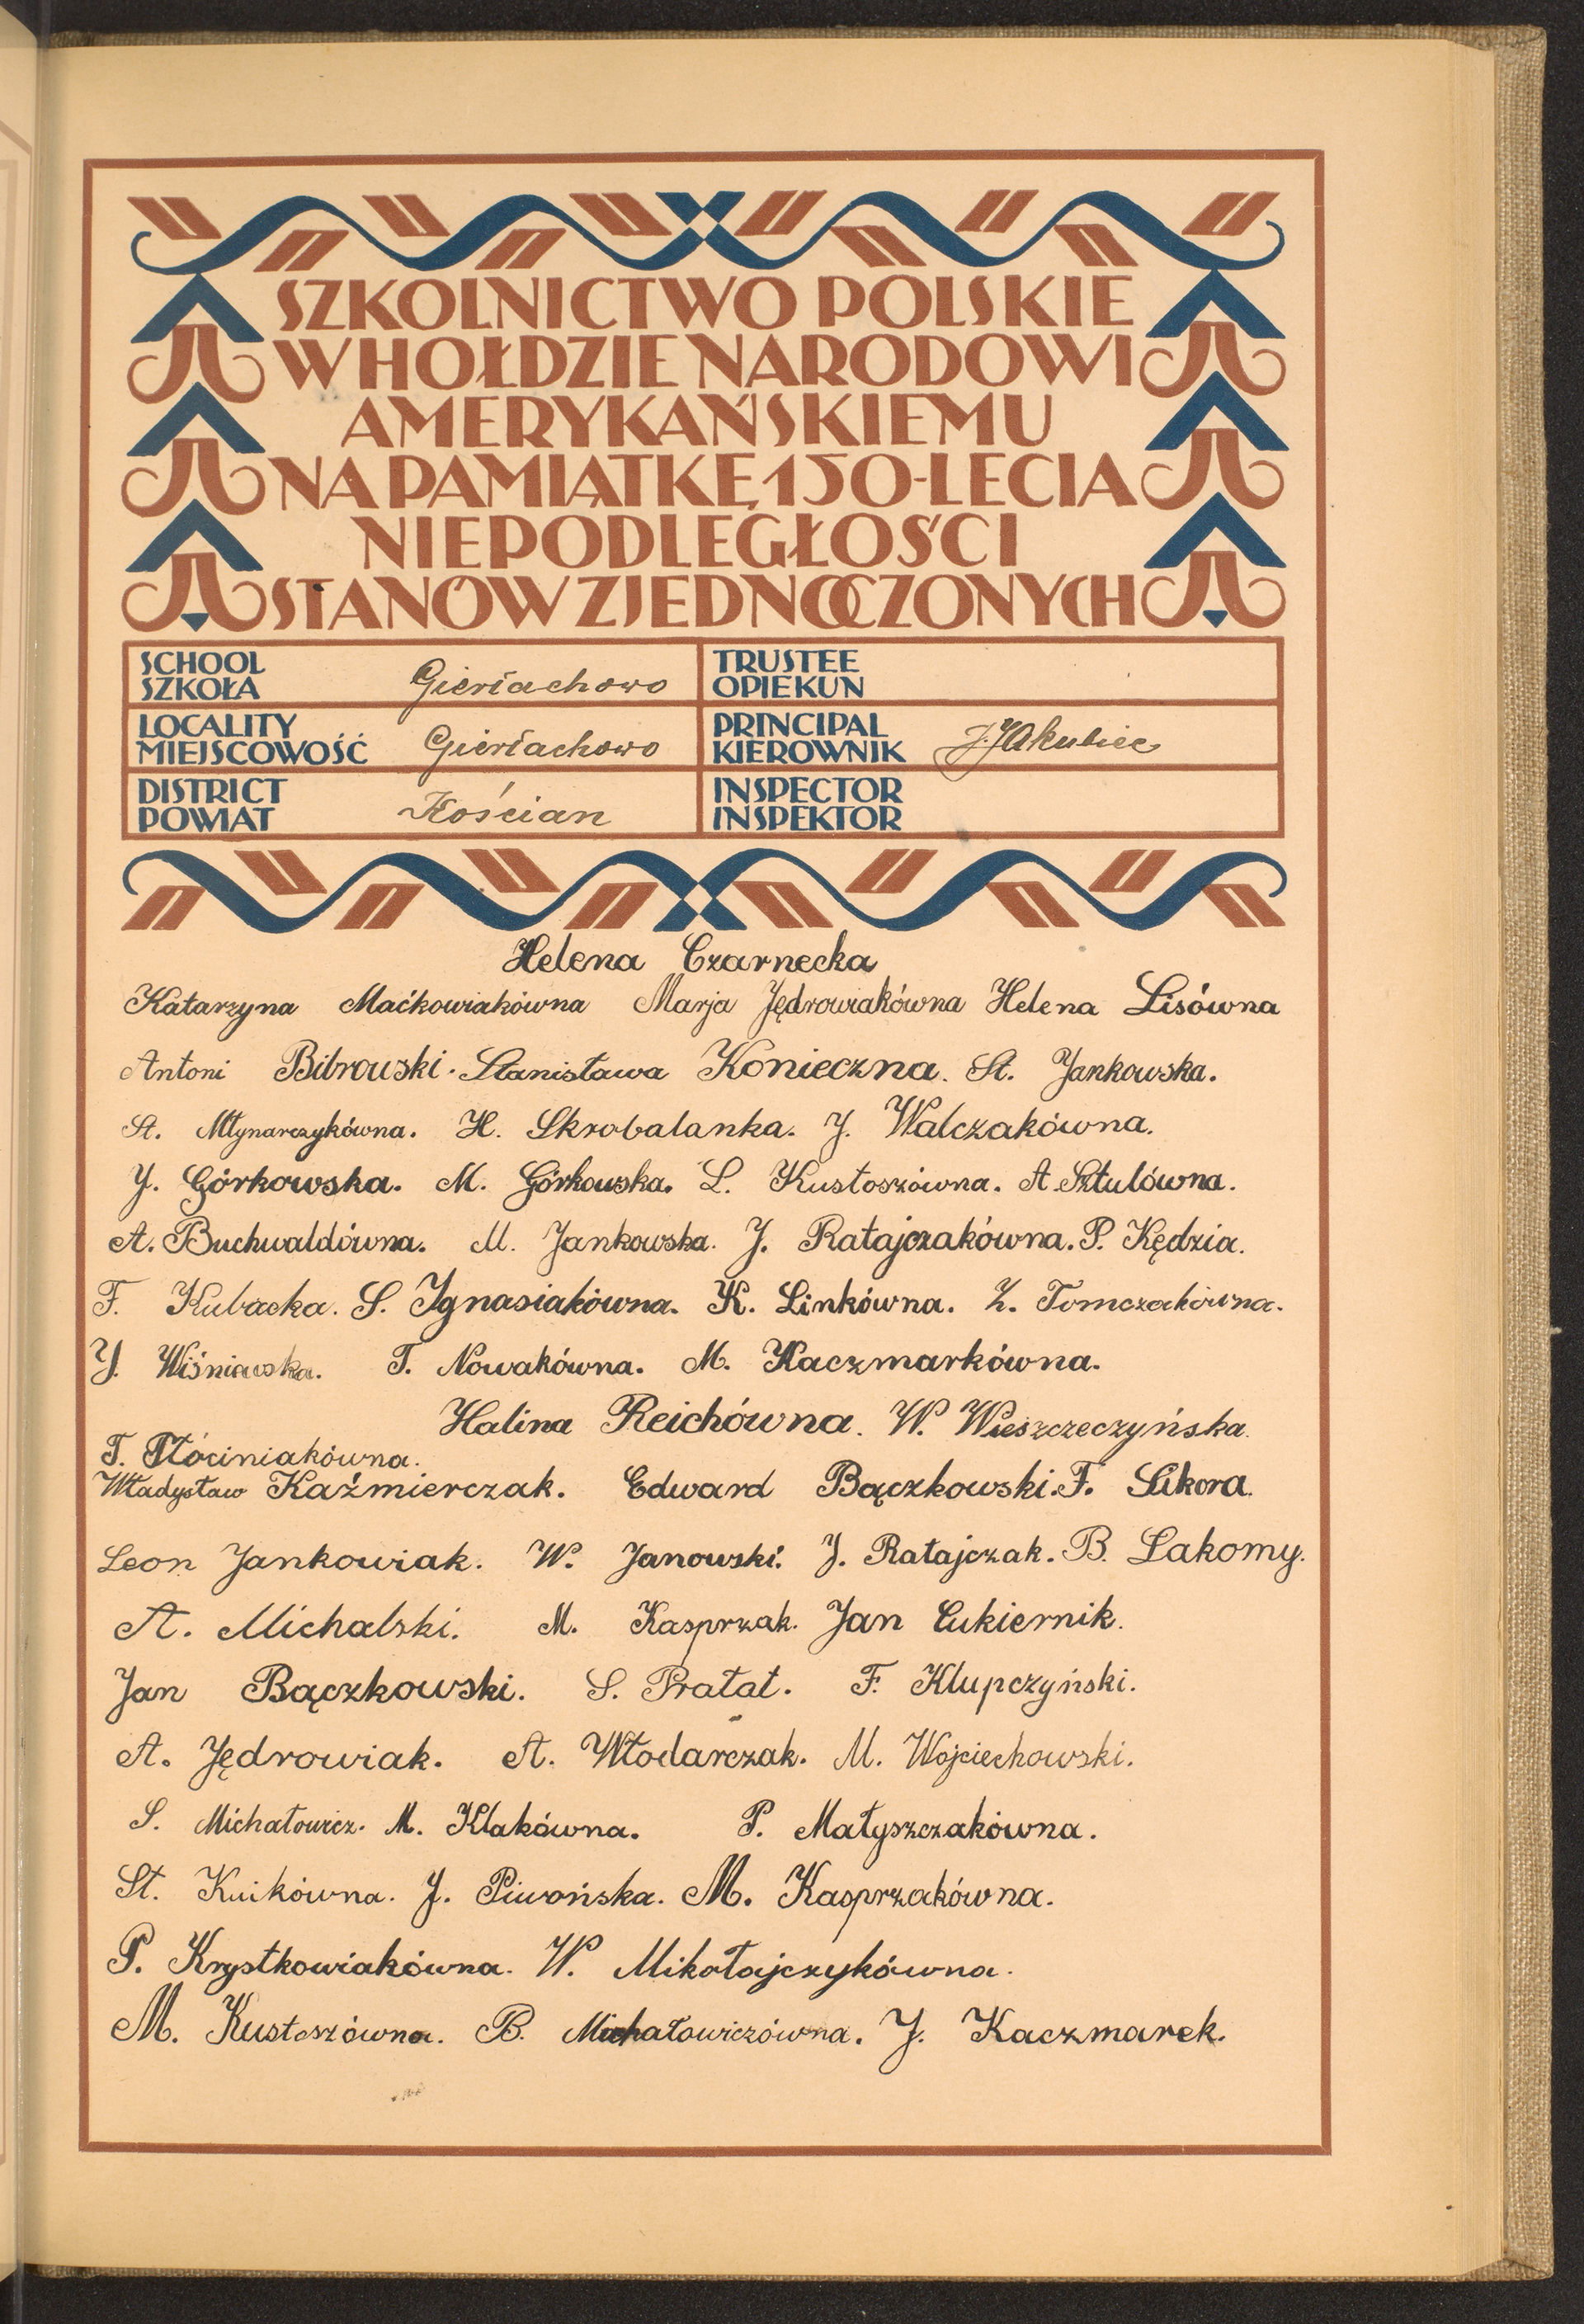 SZKOLNICTWO POLSKIE
W HOŁDZIE NARODOWI
AMERYKAŃSKIEMU
NA PAMIĄTKĘ 150-LECIA
NIEPODLEGŁOŚCI
STANÓW ZJEDNOCZONYCH
SCHOOL
SZKOŁA Gierłachowo
TRUSTEE
OPIEKUN
LOCALITY
MIEJSCOWOŚĆ Gierłachowo
PRINCIPAL
KIEROWNIK J. Jakubiec
DISTRICT
POWIAT Kościan
INSPECTOR
INSPEKTOR
Helena Czarnecka
Katarzyna Maćkowiakówna Marja Jędrowiakówna Helena Lisówna
Antoni Bibrowski. Stanisława Konieczna. St. Jankowska.
St. Młynarczykówna. H. Skrobalanka. J. Walczakówna.
J. Górkowska. M. Górkowska. L. Kustoszówna. A. Sztulówna.
A. Buchwaldówna. M. Jankowska. J. Ratajczakówna. P. Kędzia.
F. Kubacka. S. Ignasiakówna. K. Linkówna. Z. Tomczakówna.
J. Wiśniewska. T. Nowakówna. M. Kaczmarkówna.
Halina Reichówna. W. Wieszczeczyńska.
T. Płóciniakówna.
Władysław Kaźmierczak. Edward Bączkowski. F. Sikora.
Leon Jankowiak. W. Janowski. J. Ratajczak. B. Łakomy.
A. Michalski. M. Kasprzak. Jan Cukiernik.
Jan Bączkowski. S. Prałat. F. Klupczyński.
A. Jędrowiak. A. Włodarczak. M. Wojciechowski.
S. Michałowicz. M. Klakówna. P. Małyszczakówna.
St. Kuikówna. J. Piwońska. M. Kasprzakówna.
P. Krystkowiakówna. W. Mikołajczykówna.
M. Kustoszówna. B. Michałowiczówna. J. Kaczmarek.